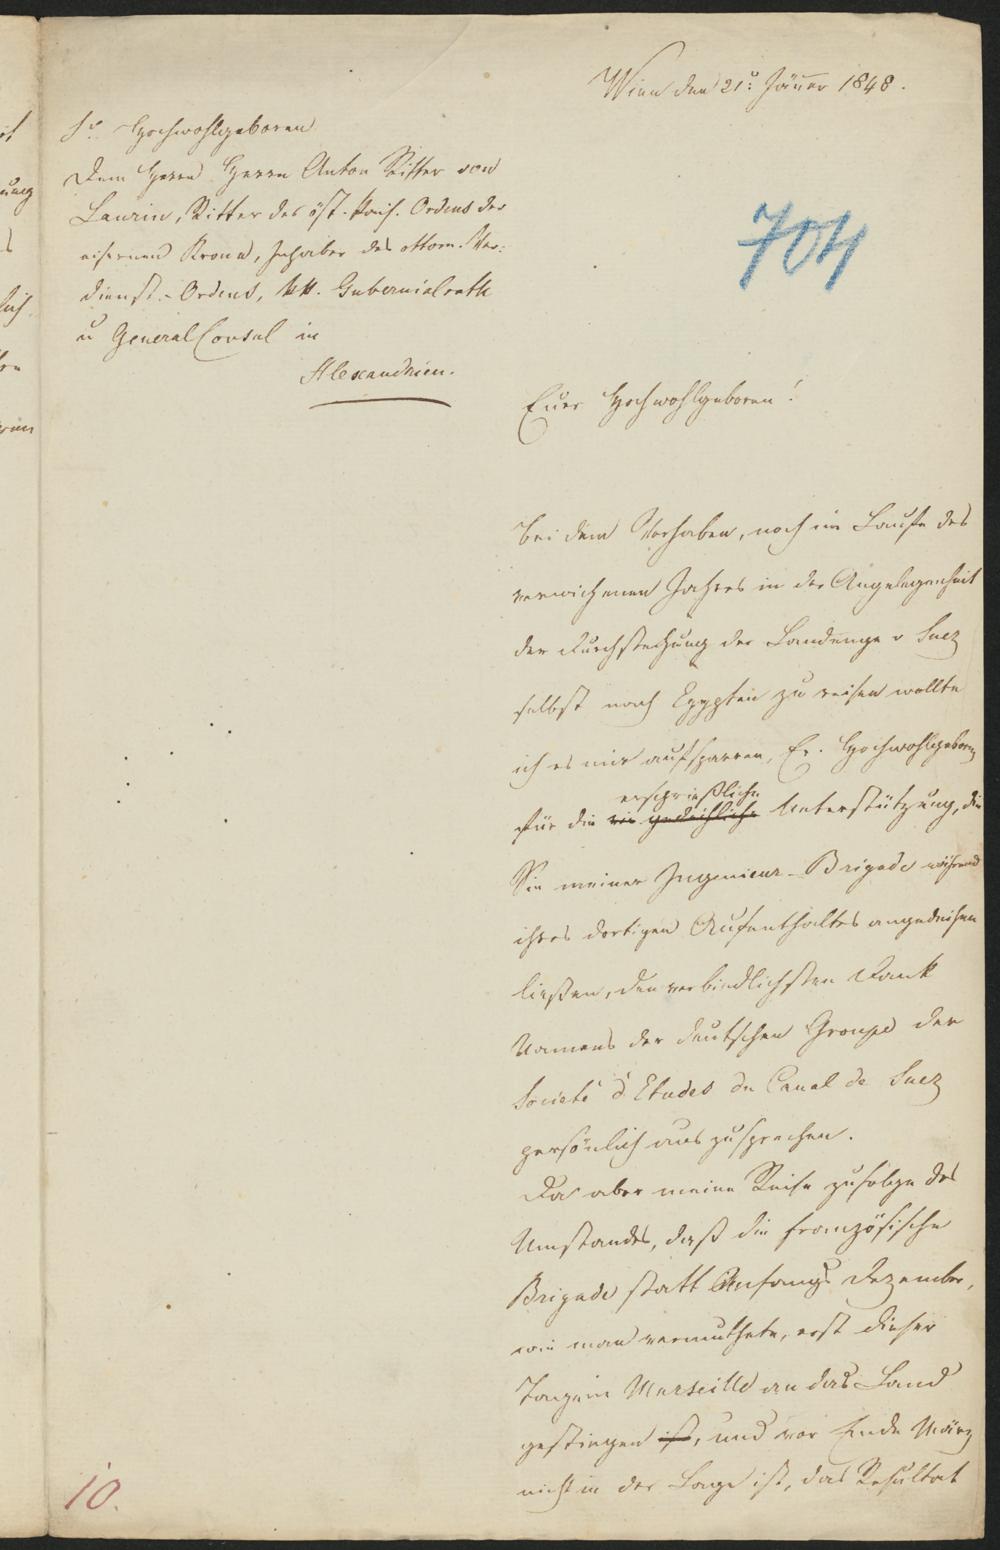 Wien den 21: Jänner 1848.
Sr Hochwohlgeboren
Dem Herrn Herrn Anton Ritter von
Laurin, Ritter des öst. kais. Ordens der
eisernen Krone, Inhaber des ottom. Ver-
dienst-Ordens, kk. Gubernialrath
u General Consul in
Alexandrien.
704
Euer Hochwohlgeboren!
Bei dem Vorhaben, noch im Laufe des
verwichenen Jahres in der Angelegenheit
der Durchstechung der Landenge v Suez
selbst nach Egypten zu reisen wollte
ich es mir aufsparen, Er. Hochwohlgeboren
ersprießliche
für die gedeihliche Unterstützung, die
Sie meiner Ingenieur-Brigade während
ihres dortigen Aufenthaltes angedeihen
ließen, den verbindlichsten Dank
Namens der deutschen Groupe der
Societé d'Etudes du Canal de Suez
persönlich auszusprechen.
Da aber meine Reise zufolge des
Umstandes, daß die französische
Brigade statt Anfangs Dezember,
wie man vermuthete, erst dieser
Tage in Marseille an das Land
gestiegen ist, und vor Ende März
nicht in der Lage ist, das Resultat
10.